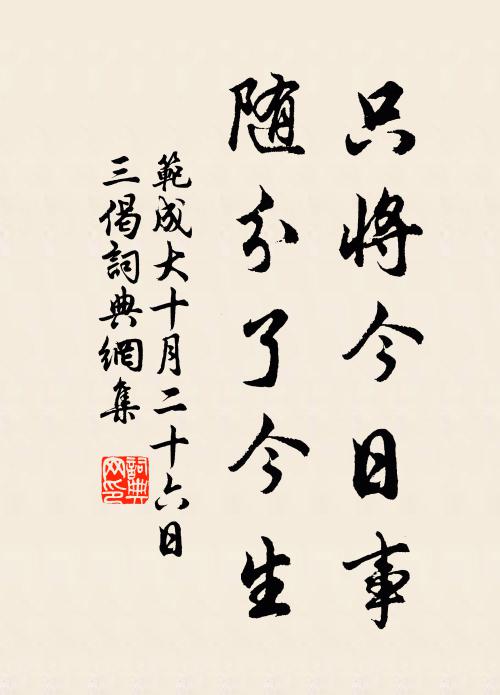 只将今日事
随分了今生
範成大十月二十六日
三偈詞典網集
詞典
网印